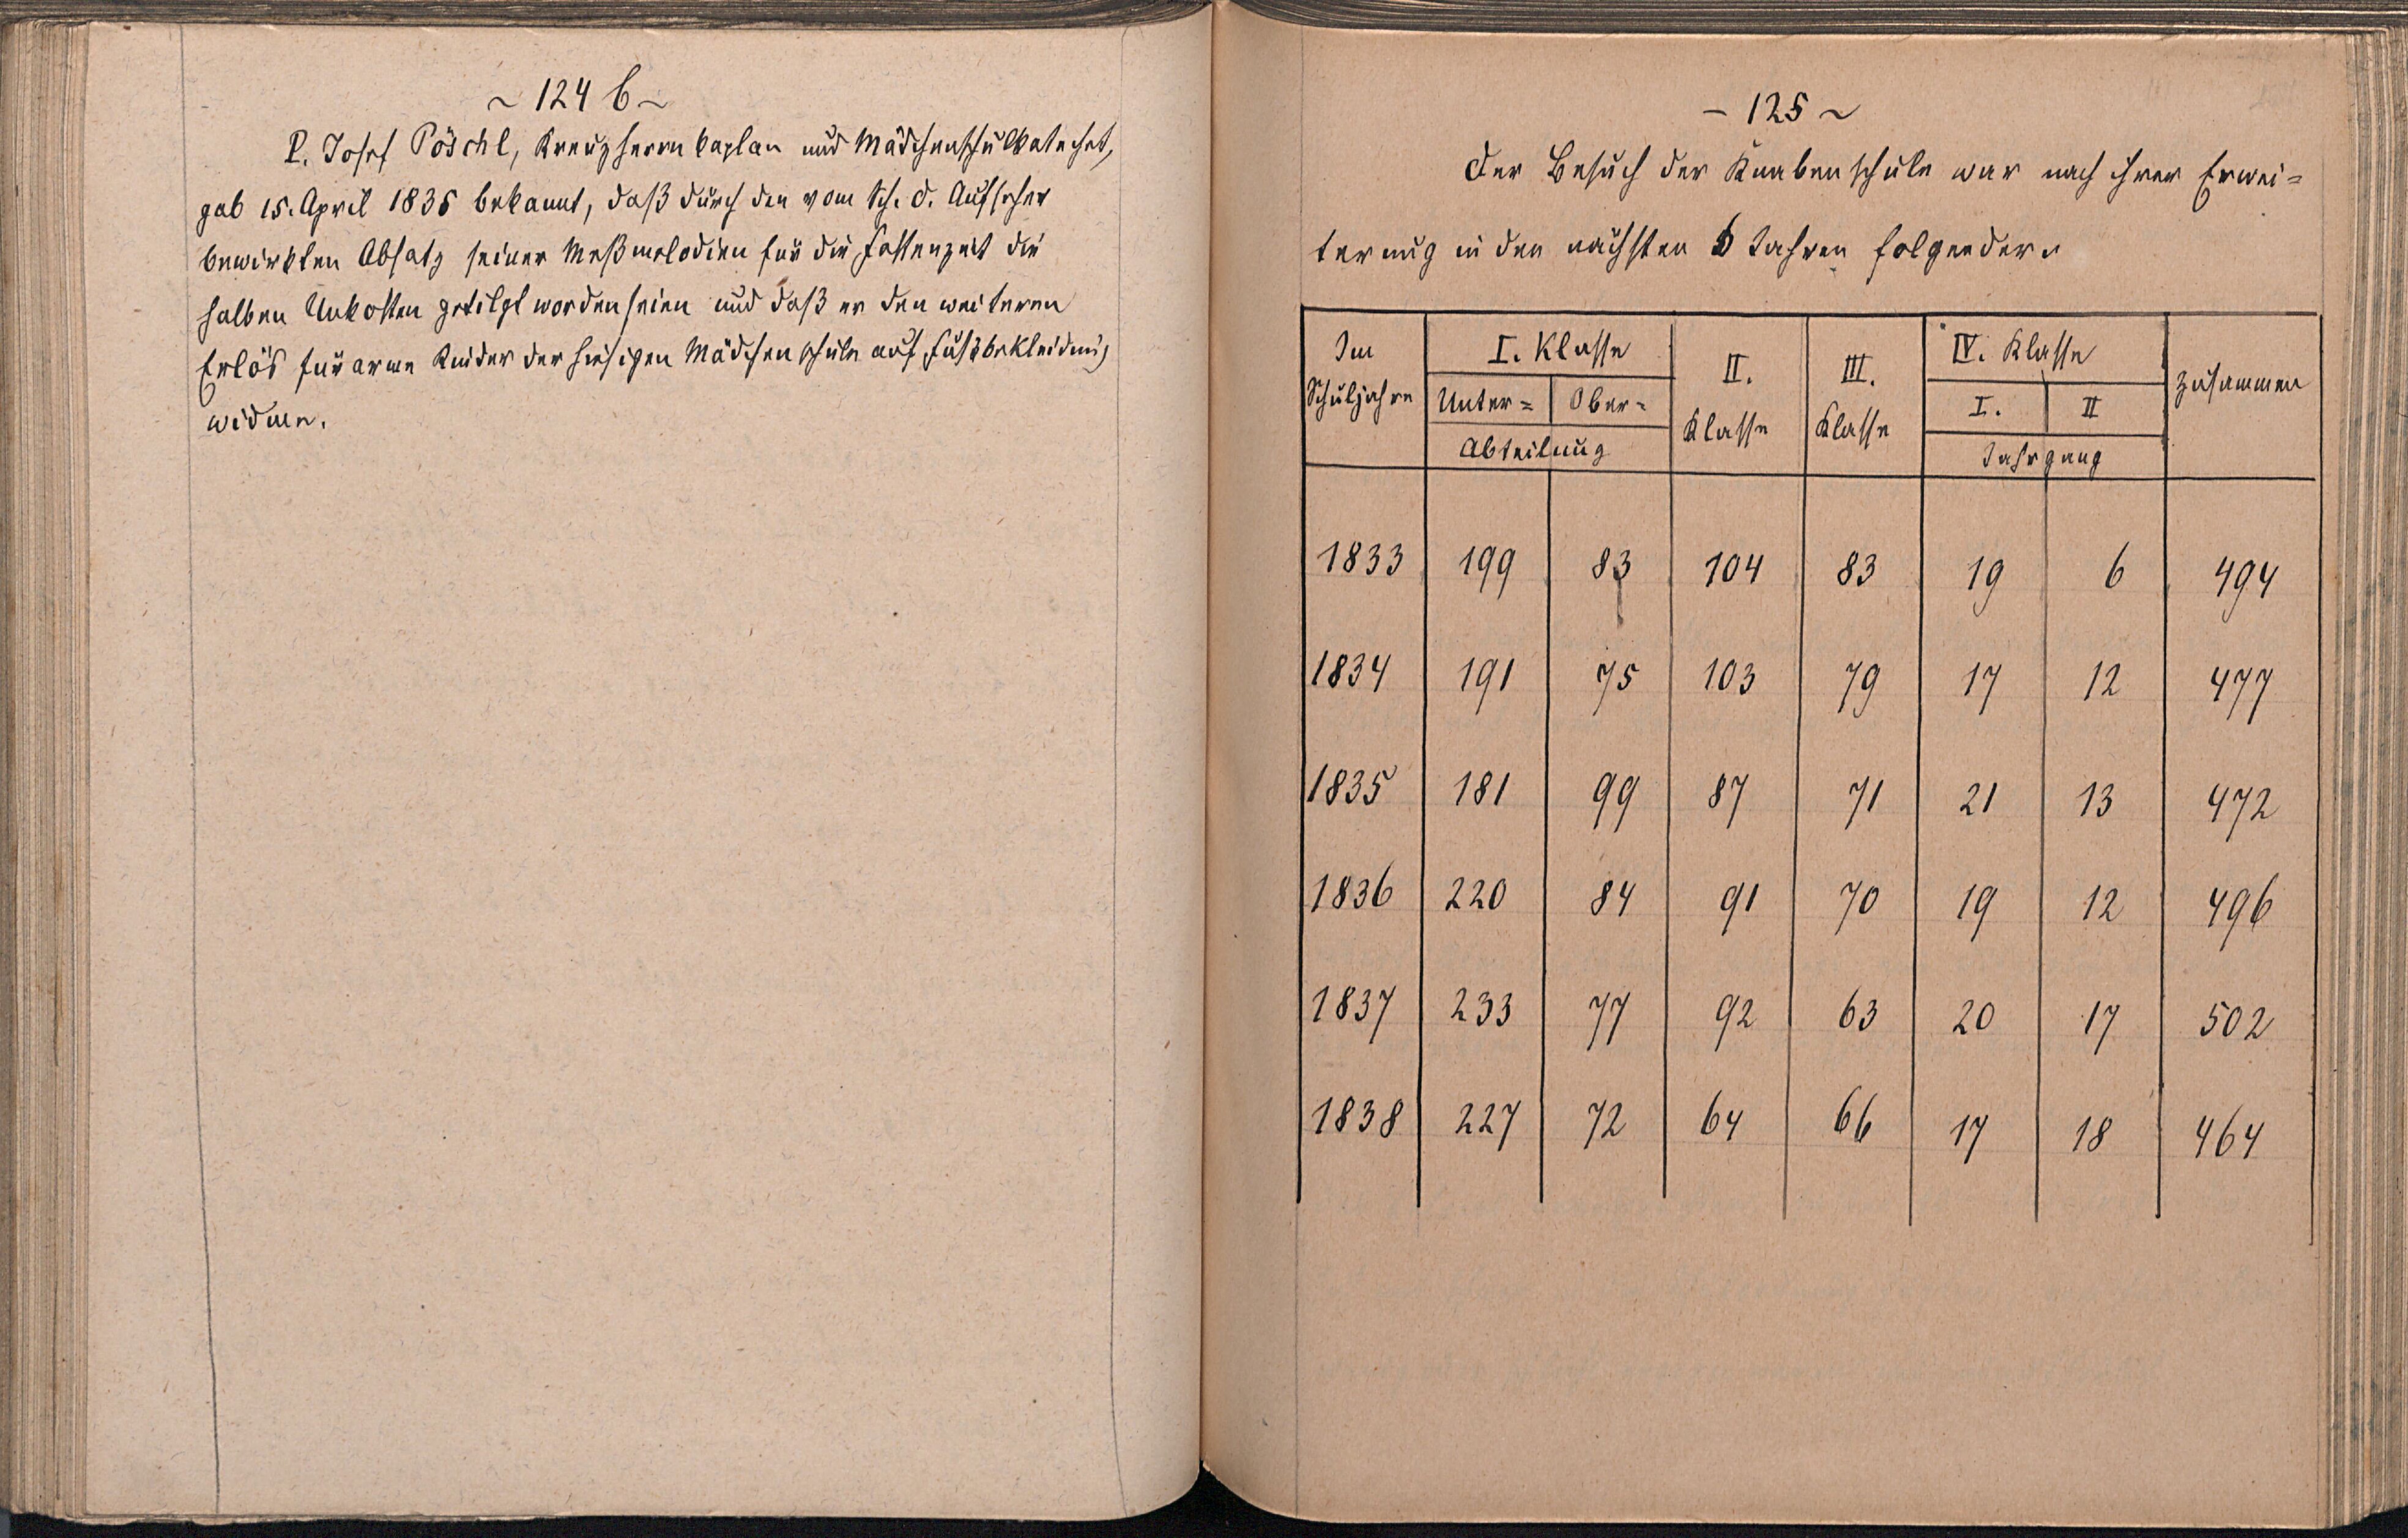 ~ 124 b ~
P. Josef Pöschl, Kreuzherrnkaplan und Mädchenschulkatechet,
gab 15. April 1835 bekannt, daß durch den vom Sch. d. Aufseher
bewirkten Absatz seiner Meßmelodien für die Fastenzeit die
halben Unkosten getilgt worden seien und daß er den weiteren
Erlös für arme Kinder der hiesigen Mädchenschule auf Fußbekleidung
widme.
– 125 ~
Der Besuch der Knabenschule war nach ihrer Erwei=
terung in den nächsten 6 Jahren folgender:
Im Schuljahre | I. Klasse | II. Klasse | III. Klasse | IV. Klasse | Zusammen
Unter= | Ober= | I. | II
Abteilung | Jahrgang
1833 | 199 | 83 | 104 | 83 | 19 | 6 | 494
1834 | 191 | 75 | 103 | 79 | 17 | 12 | 477
1835 | 181 | 99 | 87 | 71 | 21 | 13 | 472
1836 | 220 | 84 | 91 | 70 | 19 | 12 | 496
1837 | 233 | 77 | 92 | 63 | 20 | 17 | 502
1838 | 227 | 72 | 64 | 66 | 17 | 18 | 464